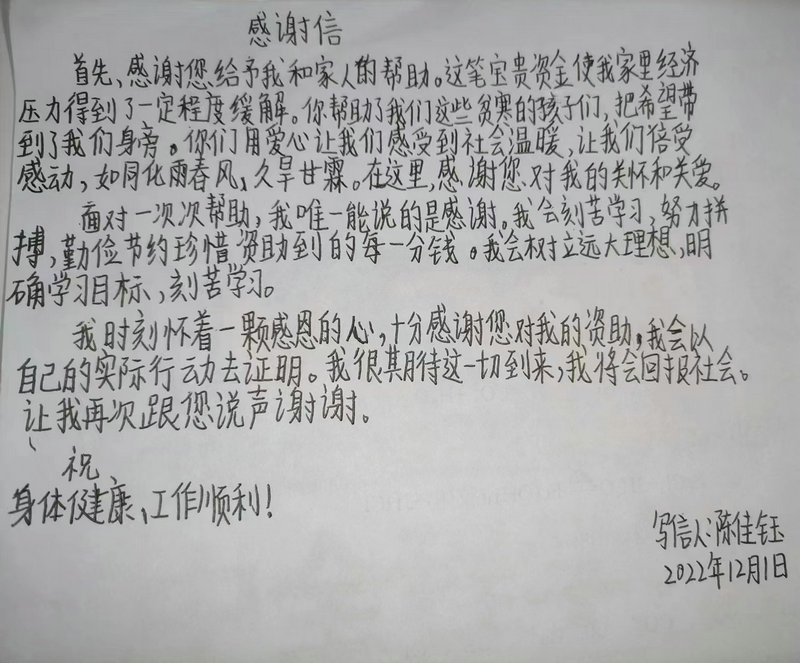 感谢信
首先、感谢您给予我和家人的帮助。这笔宝贵资金使我家里经济
压力得到了一定程度缓解。你帮助了我们这些贫寒的孩子们，把希望带
到了我们身旁。你们用爱心让我们感受到社会温暖，让我们倍受
感动，如同化雨春风，久旱甘霖。在这里，感谢您对我的关怀和关爱。
面对一次次帮助，我唯一能说的是感谢。我会刻苦学习，努力拼
搏，勤俭节约珍惜资助到的每一分钱。我会树立远大理想，明
确学习目标，刻苦学习。
我时刻怀着一颗感恩的心，十分感谢您对我的资助，我会以
自己的实际行动去证明。我很期待这一切到来，我将会回报社会。
让我再次跟您说声谢谢。
祝
身体健康、工作顺利！
写信人：陈佳钰
2022年12月1日